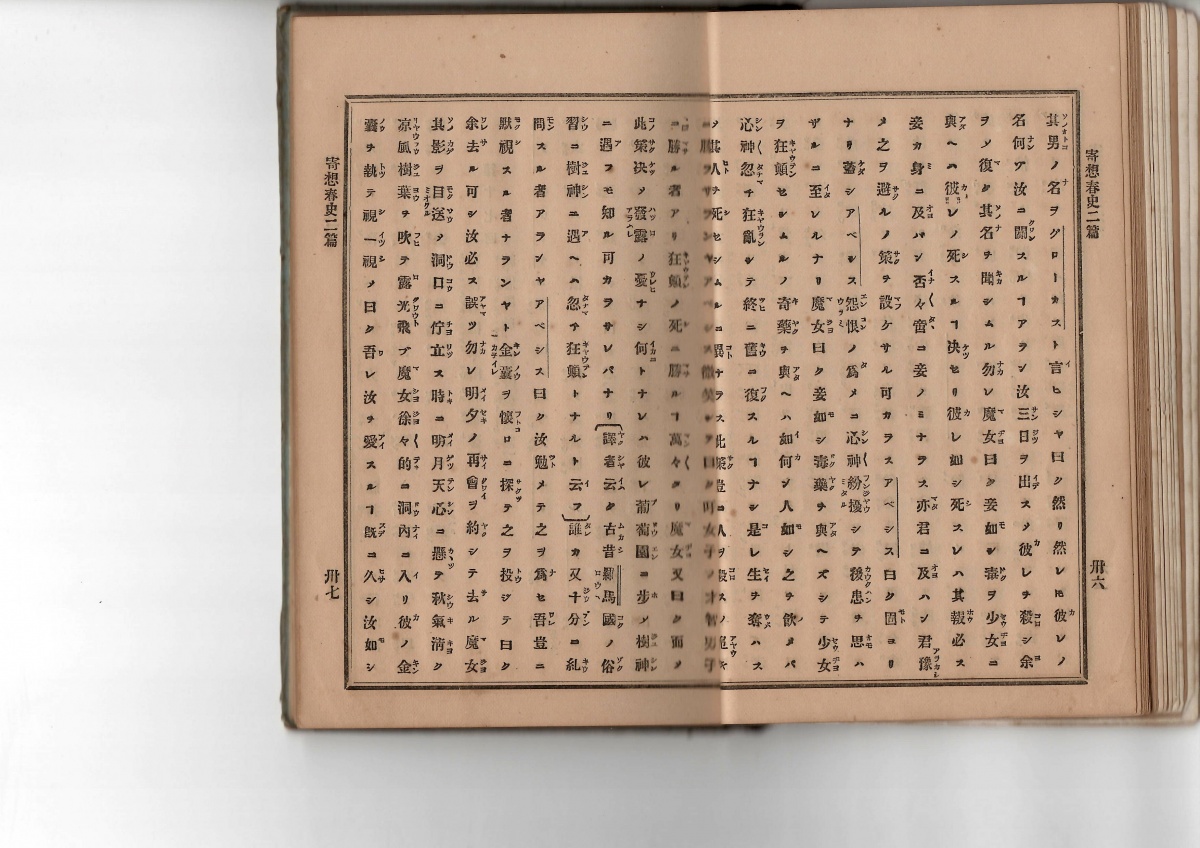 寄想春史二篇
卅六
其男ノ名ヲグローカスト言ヒシャ曰ク然リ然レ𪜈彼レノ
名何ゾ汝ニ關スルヿアラン汝三日ヲ出スメ彼レヲ殺シ余
ヲメ復タ其名ヲ聞シムル勿レ魔女曰ク妾如モシ毒ヲ少女ニ
與ヘハ彼レノ死スルヿ决セリ彼レ如シ死スレハ其報必ス
妾カ身ニ及バン否々啻ニ妾ノミナラス亦君ニ及ハン君豫
メ之ヲ避ルノ策ヲ設ケサル可カヲスアベシス曰ク固ヨリ
ナリ蓋シアベシス怨恨ノ爲メニ心神紛擾シテ後患ヲ思ハ
ザルニ至レルナリ魔女曰ク妾如シ毒藥ヲ與ヘズシテ少女
ヲ狂顛セシムルノ奇藥ヲ與ヘハ如何ソ人如シ之ヲ飮メバ
心神忽チ狂亂シテ終ニ舊ニ復スルヿナシ是レ生ヲ奪ハス
ソ其人ヲ死セシムルニ異ナラス此策豈ニ人ヲ殺スノ
ニ勝ル者アリ狂顛ノ死ニ勝ルヿ萬々タリ魔女又曰ク而メ
此策决メ發露ノ憂ナシ何トナレハ彼レ葡萄園ニ歩メ樹神
ニ遇フモ知ル可カラサレバナリ(譯者云ク古昔羅馬國ノ俗
習ニ樹神ニ遇ヘハ忽チ狂顛トナルト云フ)誰カ又十分ニ糺
問スル者アランヤアベシス曰ク汝勉メテ之ヲ爲セ吾豈ニ
默視スル者ナランヤト金嚢ヲ懷ロニ探テ之ヲ投シテ曰ク
余去ル可シ汝必ス誤ツ勿レ明夕ノ再會ヲ約シテ去ル魔女
其影ヲ目送メ洞口ニ佇立ス時ニ明月天心ニ懸テ秋氣淸ク
凉風樹葉ヲ吹テ露光飛ブ魔女徐々的ニ洞內ニ入リ彼ノ金
嚢ヲ執テ視一視メ曰ク吾レ汝ヲ愛スルヿ旣ニ久シ汝如シ
寄想春史二篇
卅七